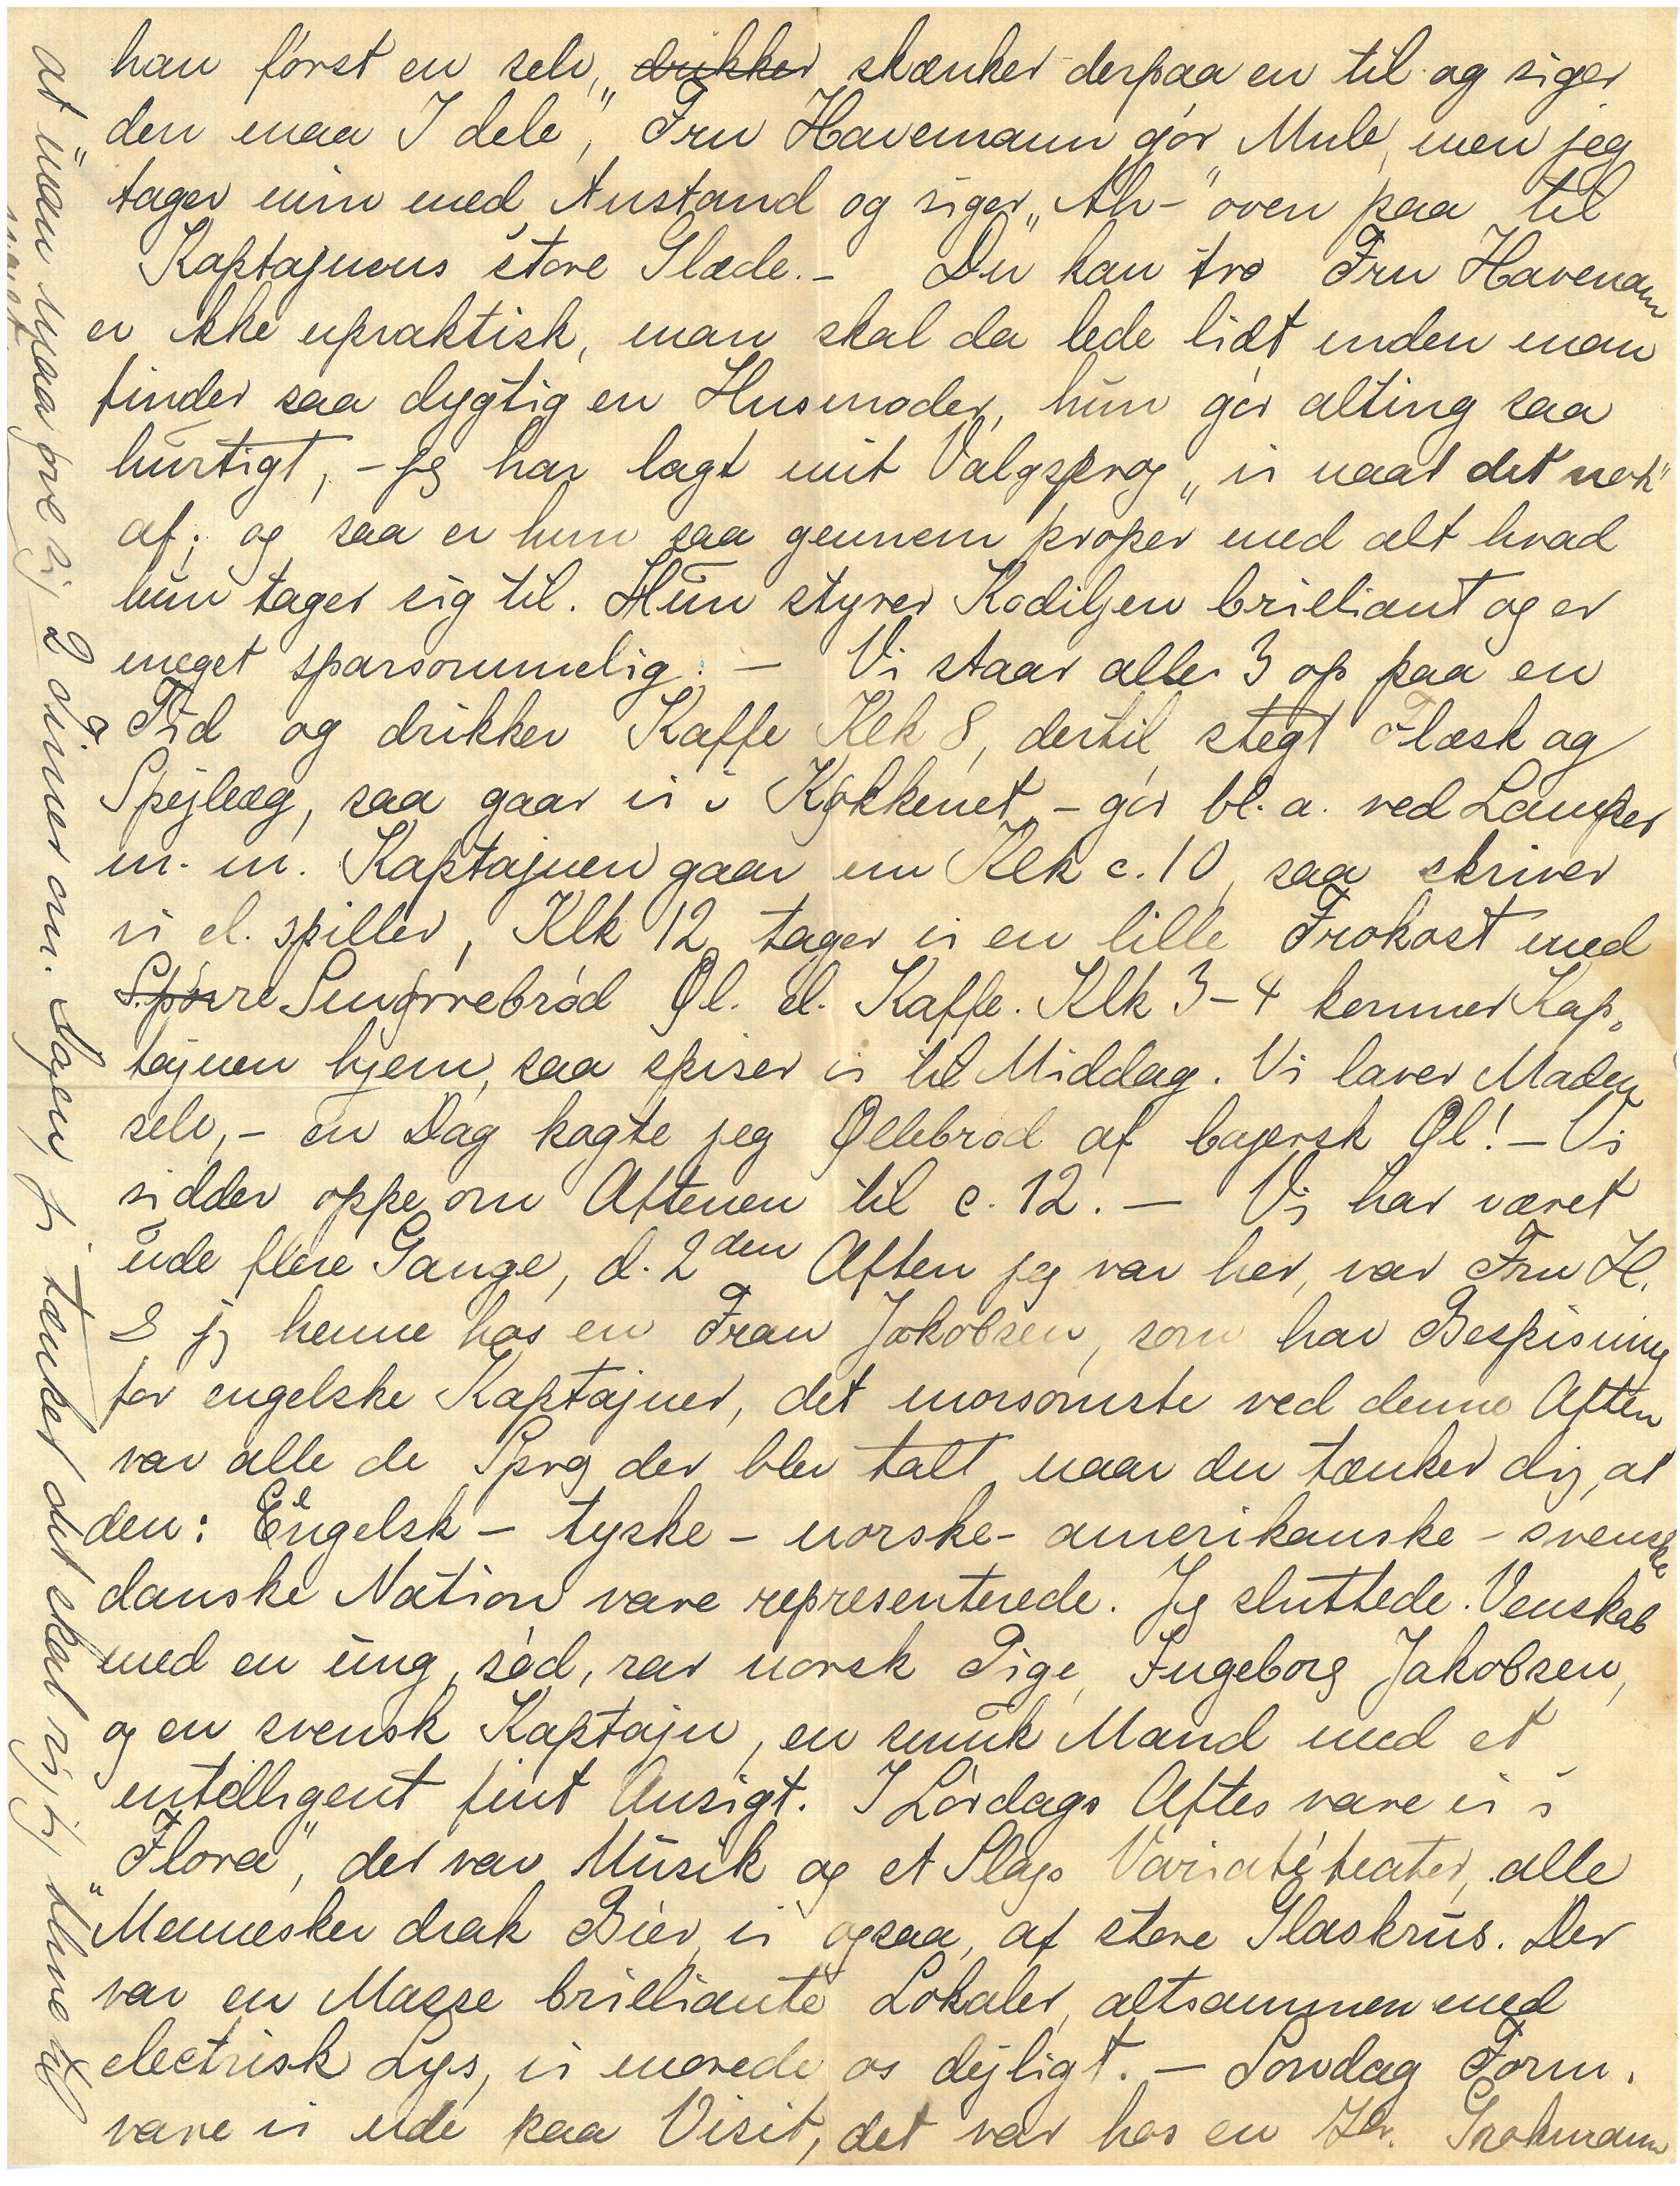 han først en selv, drikker skænker derpaa en til og siger
„den maa I dele", Fru Havemann gør Mule, men jeg
tager min med Anstand og siger „Ah-" oven paa til
Kaptajnens store Glæde. - Du kan tro Fru Havemann
er ikke upraktisk, man skal da lede lidt inden man
finder saa dygtig en Husmoder, hun gør alting saa
hurtigt, - jeg har lagt mit Valgsprog „vi naar det nok"
af; og saa er hun saa gennem proper med alt hvad
hun tager sig til. Hun styrer Kodiljen brilliant og er
meget sparsommelig. - Vi staar alle 3 op paa en
Tid og drikker Kaffe Klk 8, dertil stegt Flæsk og
Spejlæg, saa gaar vi i Køkkenet, - gør bl. a. ved Lamper
m. m. Kaptajnen gaar em Klk c. 10, saa skriver
vi el. spiller, Klk 12 tager vi en lille Frokost med
Smørrebrød Øl. el. Kaffe. Klk 3-4 kommer Kap-
tajnen hjem, saa spiser vi til Middag. Vi laver Maden
selv, - en Dag kogte jeg Øllebrød af bajersk Øl! - Vi
sidder oppe om Aftenen til c. 12. - Vi har været
ude flere Gange, d. 2den Aften jeg var her, var Fru H.
& jeg henne hos en Frau Jakobsen, som har Bespisning
for engelske Kaptajner, det morsomste ved denne Aften
var alle de Sprog der blev talt, naar du tænker dig, at
den: Engelsk - tyske - norske - amerikanske - svenske
danske Nation vare representerede. Jeg sluttede Venskab
med en ung, sød, rar norsk Pige, Ingeborg Jakobsen,
og en svensk Kaptajn, en smuk Mand med et
intelligent fint Ansigt. I Lørdags Aftes vare vi i
„Flora", der var Musik og et Slags Variatéteater, alle
Mennesker drak Bier, vi ogsaa, af store Glaskrus. Der
var en Masse brilliante Lokaler, altsammen med
electrisk Lys, vi morede os dejligt. - Søndag Form.
vare vi ude paa Visit, det var hos en Hr. Grohmann
at man maa øve sig 2 Timer om Dagen, jeg tænker det skal rigtig blive til